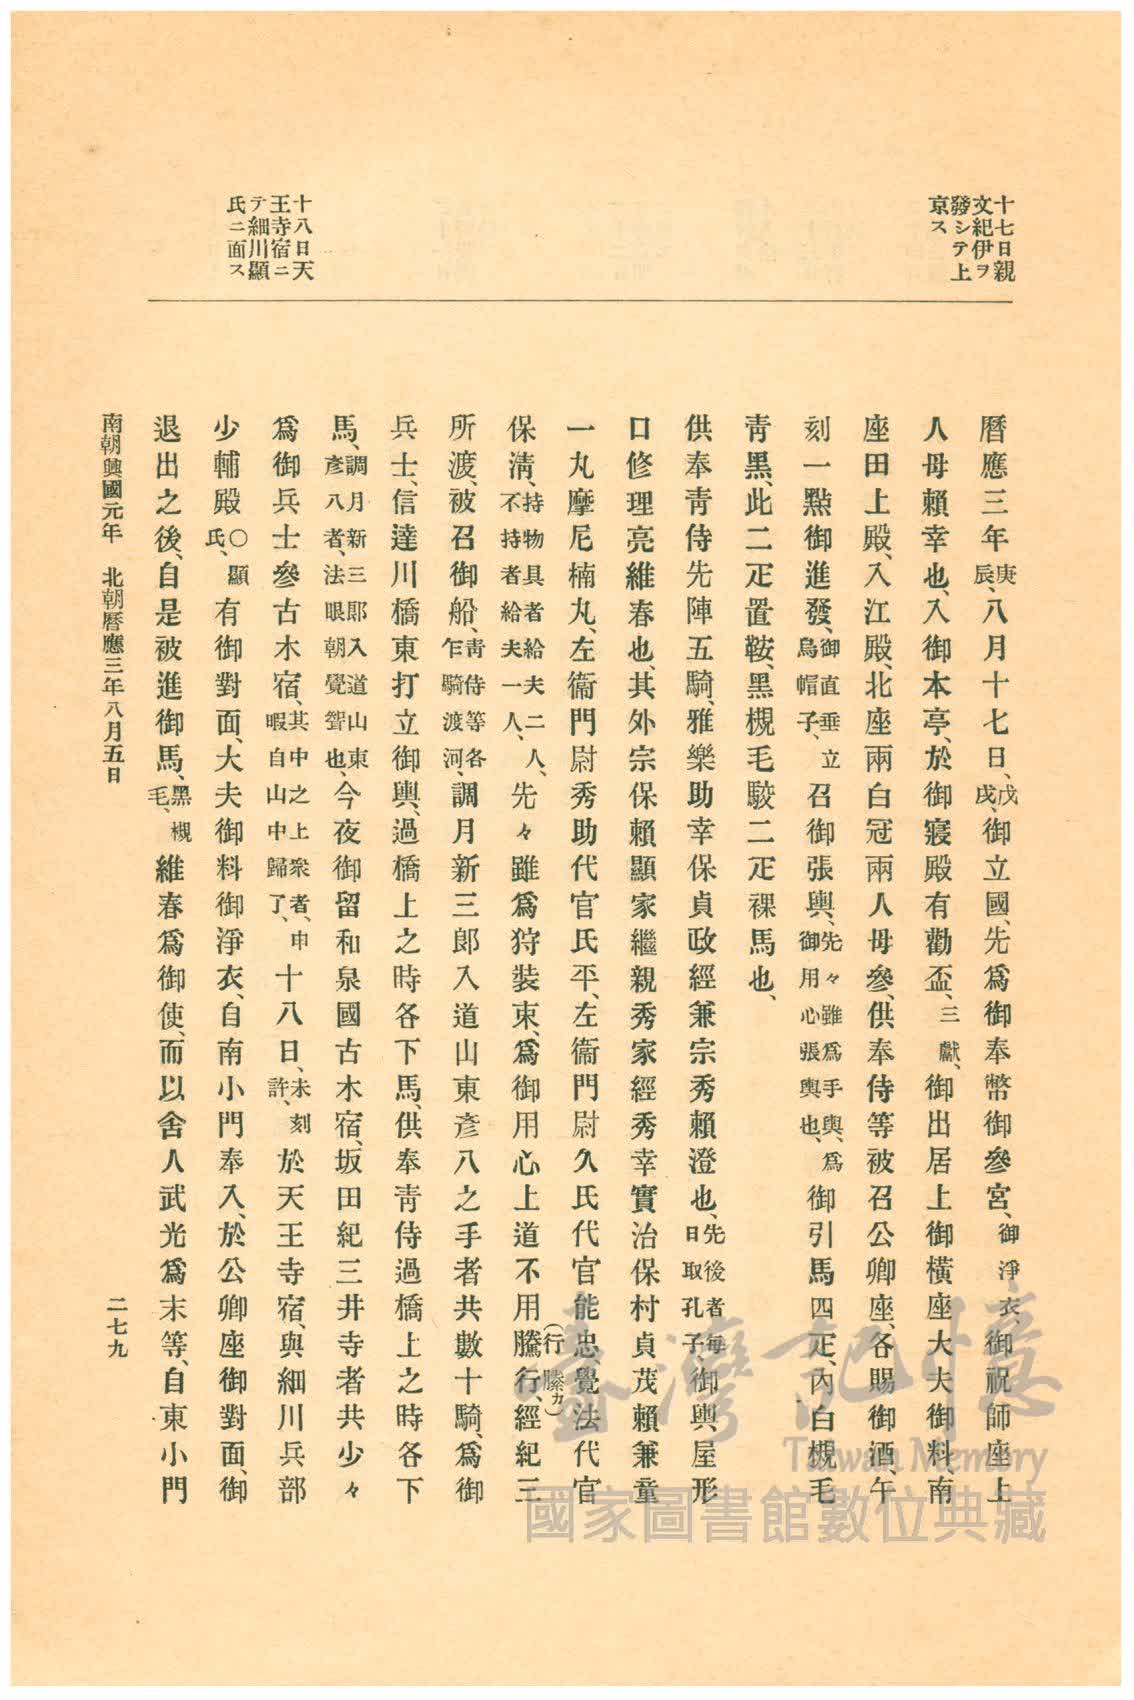 十七日親
文紀伊ヲ
發シテ上
京ス
十八日天
王寺宿ニ
テ細川顯
氏ニ面ス
曆應三年庚辰、八月十七日、戊戌、御立國、先爲御奉幣御參宮、御淨衣、御祝師座上
人母賴幸也、入御本亭、於御寢殿有勸盃、三獻、御出居上御橫座大夫御料、南
座田上殿、入江殿、北座兩白冠兩人母參、供奉侍等被召公卿座、各賜御酒、午
刻一點御進發、御直垂立烏帽子、召御張輿、先々雖爲手輿、爲御用心張輿也、御引馬四疋、內白槻毛
靑黑、此二疋置鞍、黑槻毛駮二疋裸馬也、
供奉靑侍先陣五騎、雅樂助幸保貞政經兼宗秀賴澄也、先後者每日取孔子、御輿、屋形
口修理亮維春也、其外宗保賴顯家繼親秀家經秀幸實治保村貞茂賴兼童
一丸摩尼楠丸、左衞門尉秀助代官氏平、左衞門尉久氏代官能忠、覺法代官
保淸、持物具者給夫二人、不持者給夫一人、先々雖爲狩裝束、爲御用心上道不用騰行、(行縢カ)經紀三
所渡、被召御船、靑侍等各乍騎渡河、調月新三郞入道山東彥八之手者共數十騎、爲御
兵士、信達川橋東打立御輿、過橋上之時各下馬、供奉靑侍過橋上之時各下
馬、調月新三郞入道山東彥八者、法眼朝覺聟也、今夜御留和泉國古木宿、坂田紀三井寺者共少々
爲御兵士參古木宿、其中之上衆者、申暇自山中歸了、十八日、未刻許、於天王寺宿、與細川兵部
少輔殿〇顯氏、有御對面、大夫御料御淨衣、自南小門奉入、於公卿座御對面、御
退出之後、自是被進御馬、黑槻毛、維春爲御使、而以舍人武光爲末等、自東小門
南朝興國元年　北朝曆應三年八月五日
二七九
臺灣記憶
Taiwan Memory
國家圖書館數位典藏